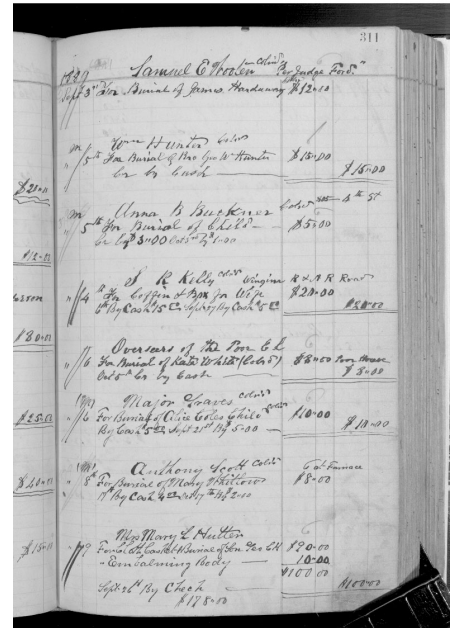 311
Samuel E Wooten Cold Per Judge Ford"
Sept 3rd For Burial of James Hardaway $12-00
Wm Hunter Cold
5th For Burial of Bro Geo W Hunter $15-00
Cr by Cash $15-00
Anna B Buckner Cold 5th St
5th For Burial of Child $5-00
Cr By $3-00
S R Kelly Cold R & A R Road
4th For Coffin & Box for Wife $20-00
By Cash 15 Sept By Cash 5
$20-00
Overseers of the Poor
6 For Burial of White (Cold) $8-00 Poor House
Oct 5th Cr by Cash $8-00
Major Graves Cold
6 For Burial of Alice Coles Child $10-00
By Cash 5 Sept 21st By 5-00 $10-00
Anthony Scott Cold
8th For Burial of Mary Whitlow $8-00
By Cash 4 Oct 17th By 2-00
Mrs Mary L Hutter
9 For Casket & Burial of $90-00
Embalming Body 10-00
$100-00
Sept 26th By Check $100-00
$178-00
$20-00
$12-00
$80-00
$25-00
$40-00
$15-00